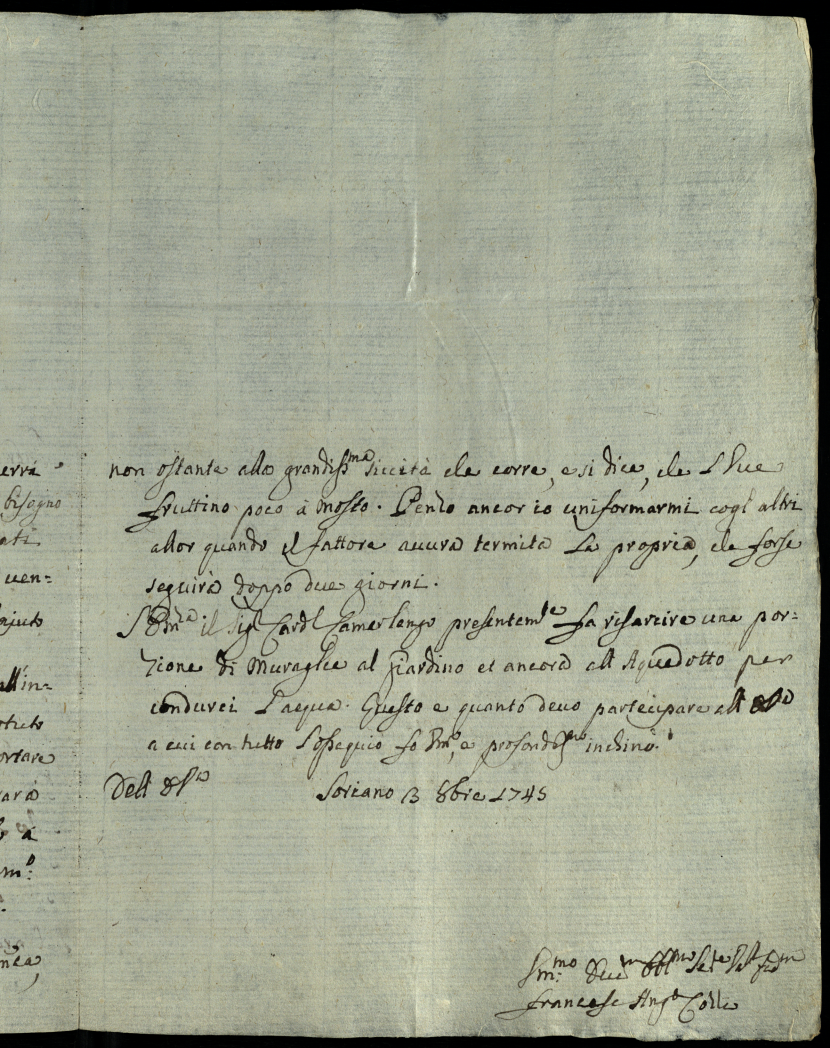 errà
bisogno
ati
uen=
ajuto
all'in=
ortare
arà
à
m.o
non ostante alla grandiss.ma siccità che corre, e si dice, che l'Uve
fruttino poco à mosto. Penso ancor io uniformarmi cogl'altri
allor quando il fattore aurà termità la propria, che forse
seguirà doppo due giorni.
il Sig.r Card.l Camerlengo presentem.te fà risarcire una por=
zione di Muraglie al giardino et ancora all'Aquedotto per
condurci l'acqua. Questo è quanto devo partecipare all'
a cui con tutto l'ossequio fò e profondiss.mo inchino.
Dell'
Soriano 13 8bre 1745
Francesc Ang.o